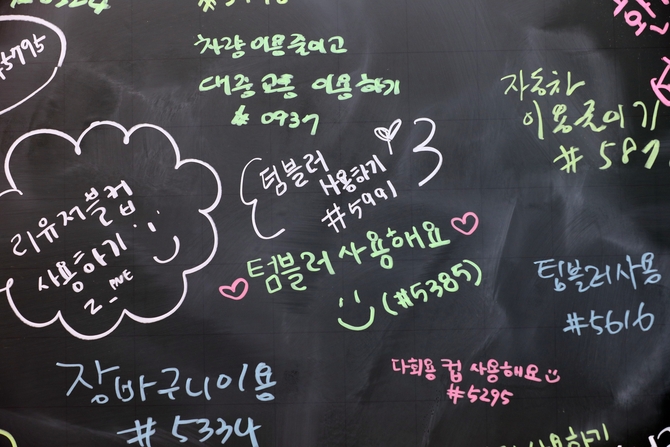 차량 이용 줄이고
대중교통 이용하기
# 0937
자동차
이용줄이기
# 587
텀블러
사용하기
#5991
리유저블컵
사용하기
텀블러 사용해요
(#5385)
텀블러 사용
#5616
장바구니 이용
# 5334
다회용 컵 사용해요
#5295
사용하기